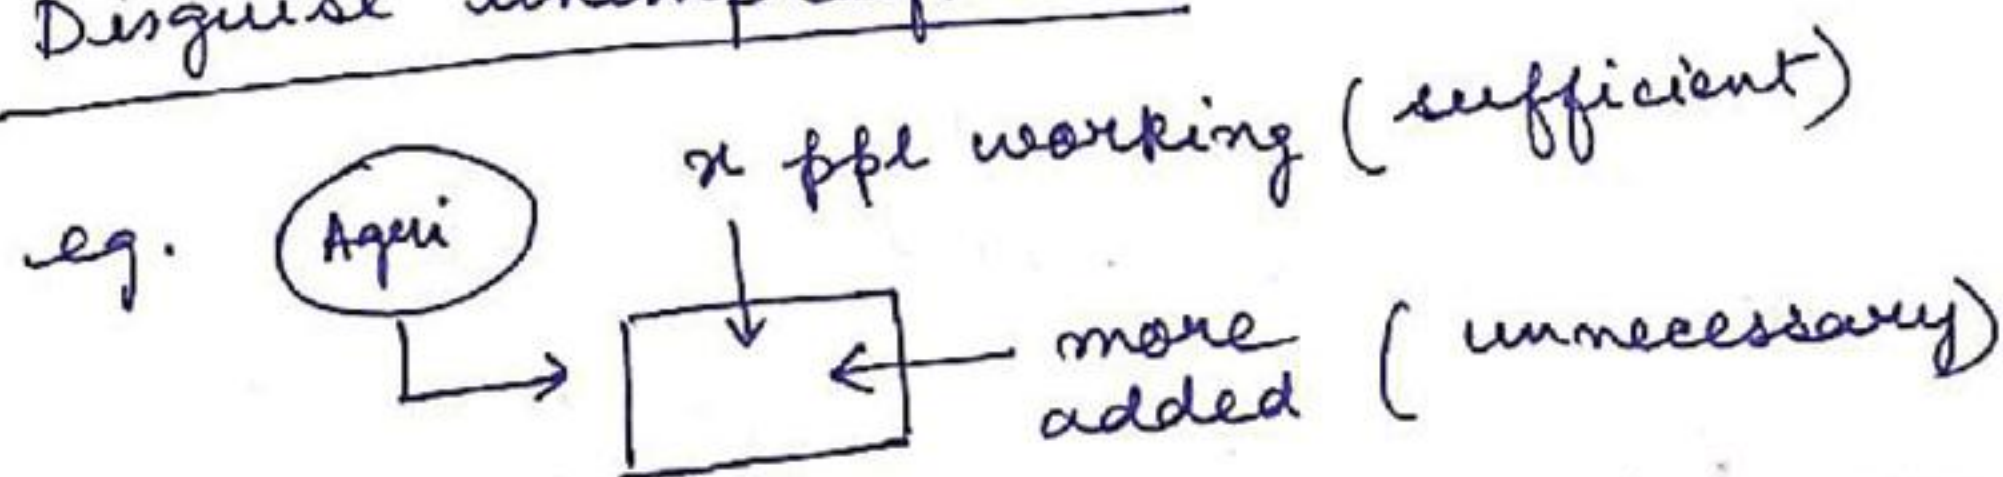 Disguise
x ppl working (sufficient)
eg. Agri
more (unnecessary)
added